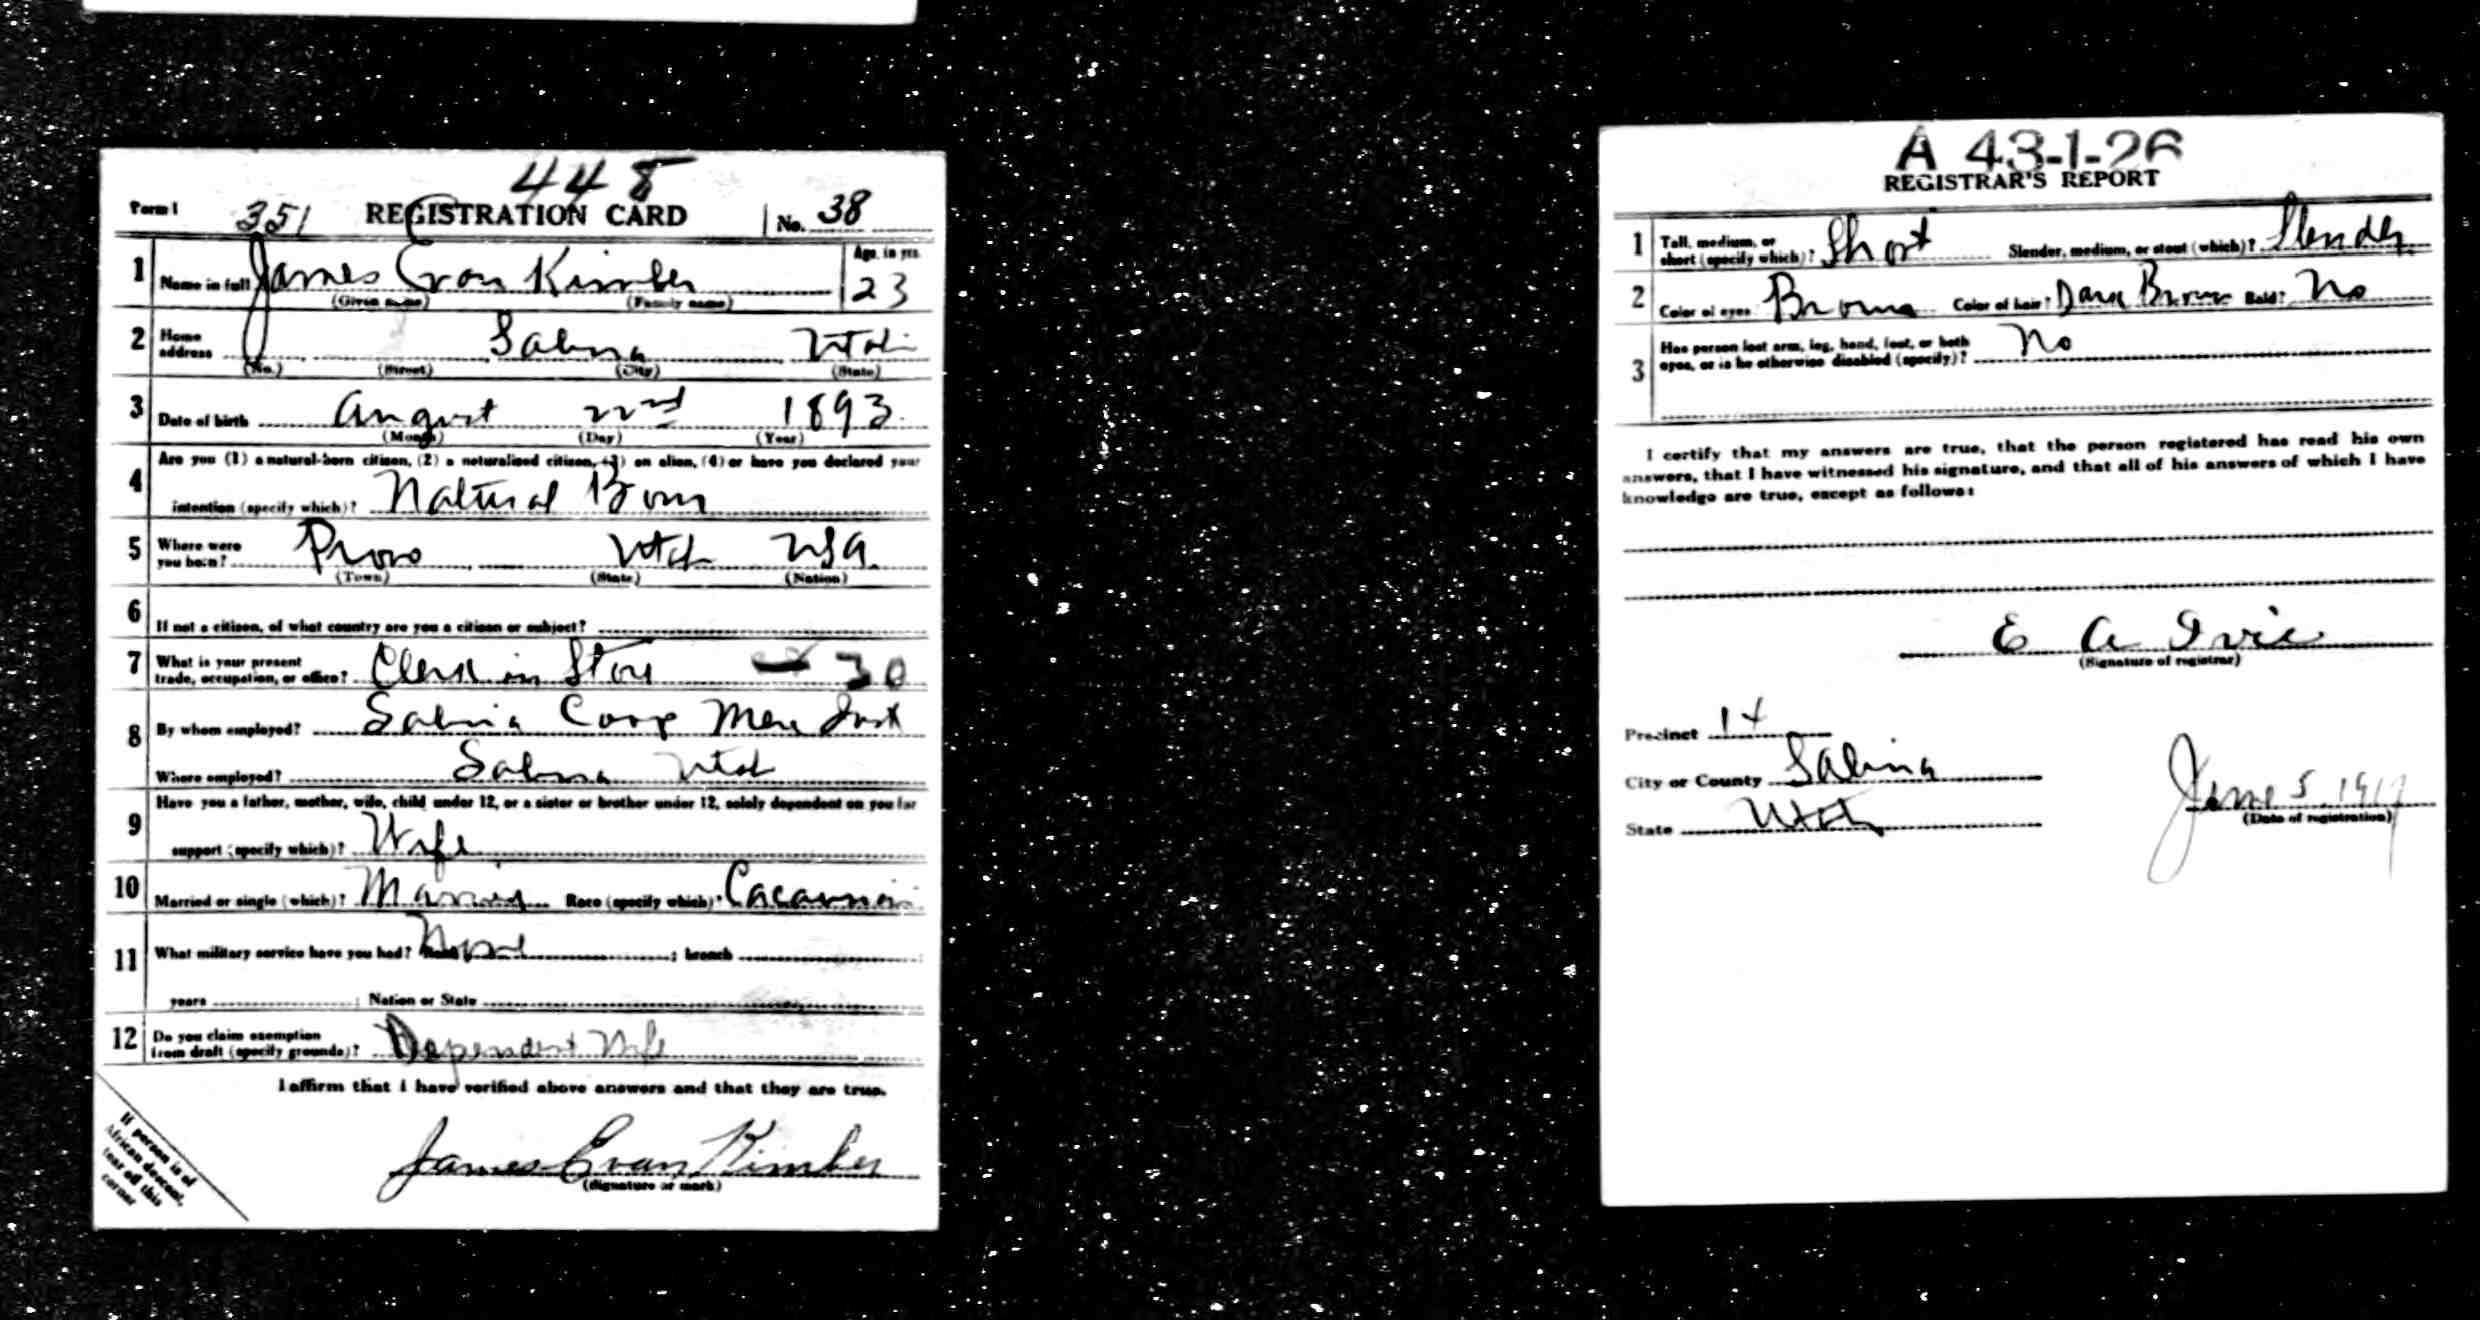 448
Form 1 351 REGISTRATION CARD No. 38
1 Name in full James Evan Kimber Age, in yrs. 23
(Given name) (Family name)
2 Home address Salina Utah
(No.) (Street) (City) (State)
3 Date of birth August 22nd 1893
(Month) (Day) (Year)
4 Are you (1) a natural-born citizen, (2) a naturalized citizen, (3) an alien, (4) or have you declared your
intention (specify which)? Natural Born
5 Where were you born? Provo Utah USA
(Town) (State) (Nation)
6 If not a citizen, of what country are you a citizen or subject?
7 What is your present trade, occupation, or office? Clerk in Store 30
8 By whom employed? Salina Coop Merc Inst
Where employed? Salina Utah
9 Have you a father, mother, wife, child under 12, or a sister or brother under 12, solely dependent on you for
support (specify which)? Wife
10 Married or single (which)? Married Race (specify which)? Cacausian
11 What military service have you had? Rank None ; branch
years ; Nation or State
12 Do you claim exemption from draft (specify grounds)? Dependent Wife
I affirm that I have verified above answers and that they are true.
James Evan Kimber
(Signature or mark)
If person is of
African descent,
tear off this
corner
A 43-1-26
REGISTRAR'S REPORT
1 Tall, medium, or short (specify which)? Short Slender, medium, or stout (which)? Slender
2 Color of eyes Brown Color of hair? Dark Brown Bald? No
3 Has person lost arm, leg, hand, foot, or both eyes, or is he otherwise disabled (specify)? No
I certify that my answers are true, that the person registered has read his own
answers, that I have witnessed his signature, and that all of his answers of which I have
knowledge are true, except as follows:
E A Ivie
(Signature of registrar)
Precinct 1st
City or County Salina
State Utah
June 5 1917
(Date of registration)